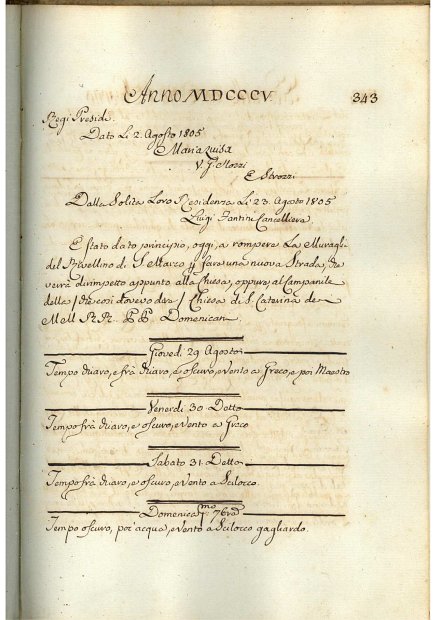 Anno MDCCCV. 343
Regi Presidi.
Dato Li 2. Agosto 1805
Maria Luisa
V. J. Mozzi
E Strozzi
Dalla Solita Loro Residenza Li 23. Agosto 1805
Luigi Fantini Cancelliere
E stato dato principio, oggi, a rompere La Muraglia
del Rivellino di S. Marco p fare una nuova Strada, che
verrà dirimpetto appunto alla Chiesa, oppure al Campanile
della Chiesa di S. Caterina de
M. RR. PP. Domenicani
Giovedi 29 Agosto
Tempo chiaro, e frà chiaro, e oscuro, e vento a Greco, e poi Maestro
Venerdi 30 Detto
Tempo frà chiaro, e oscuro, e vento a Greco
Sabato 31. Detto
Tempo frà chiaro, e oscuro, e vento a Scilocco.
Domenica pmo 7bre
Tempo oscuro, poi acqua, e vento a Scilocco gagliardo.